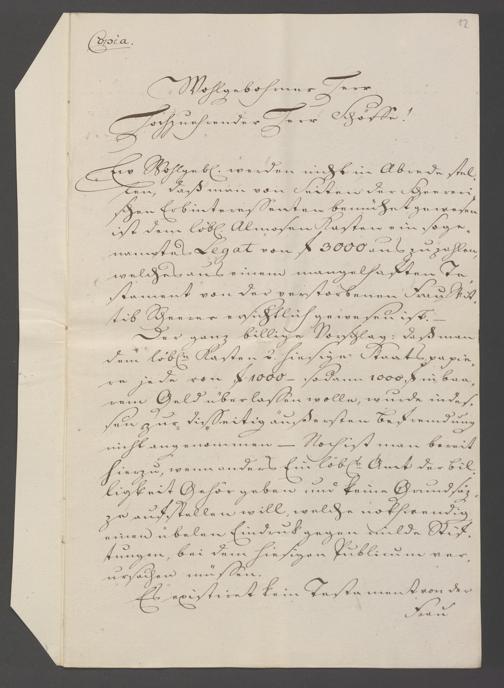 12
Copia.
Wohlgebohrner Herr
Hochzuehrender Herr Schöffe!
Ew Wohlgebl. werden nicht in Abrede stel-
len, daß man von Seiten der Scherri-
schen Erbinteressenten bemühet gewesen
ist dem löbl. Almosen Kasten ein soge-
nanntes Legat von f 3000 auszuzahlen,
welches aus einem mangelhaften Te-
stament von der verstorbenen Frau
Scherer ersichtlich gewesen ist. –
Der ganz billige Vorschlag: daß man
dem löbl. Kasten 2. hiesige Staats papie-
re jede von f 1000 – sodann 1000 f in baa-
rem Geld überlassen wolle, wurde indes-
sen zur diesseitig äußersten befremdung
nicht angenommen – Noch ist man bereit
hierzu, wenn anders Ein löbl. Amt der bil-
ligkeit Gehör geben und keine Grundsäz-
ze aufstellen will, welche nothwendig
einen übelen Eindruk gegen milde Stif-
tungen, bei dem hiesigen Publicum ver-
ursachen müssen.
Es existiret kein Testament von der
Frau